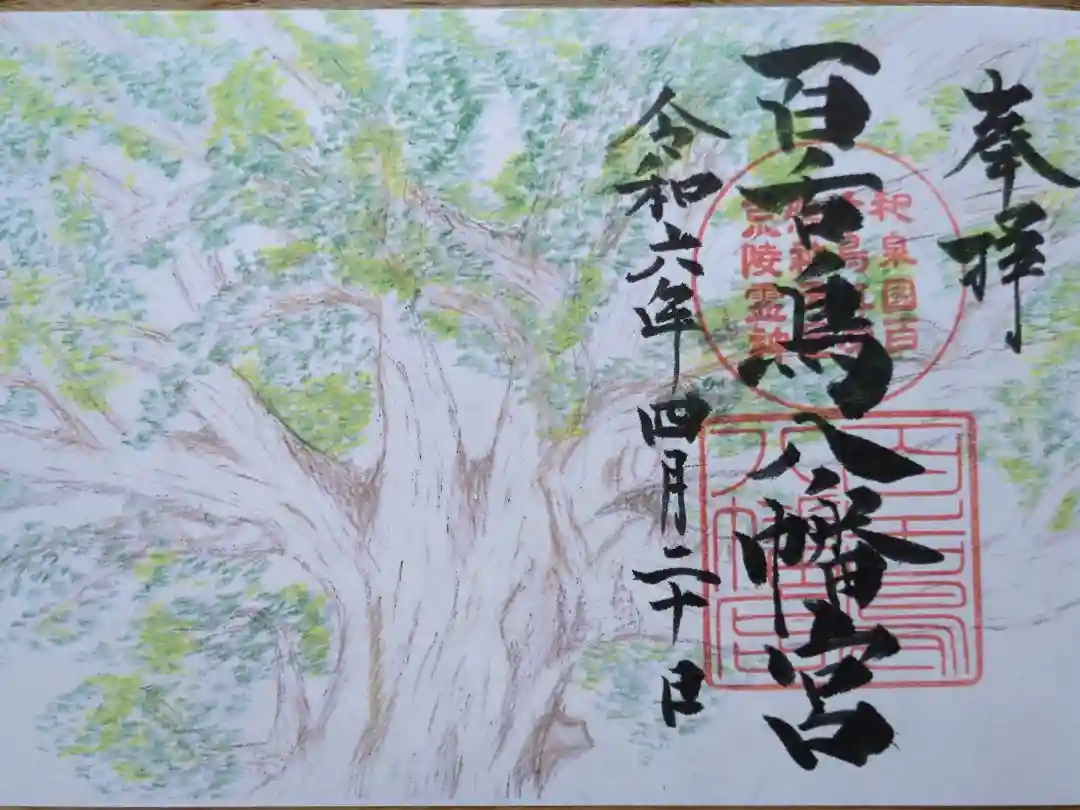 奉拝
百舌鳥八幡宮
令和六年四月二十日
泉國百
陵霊
百舌鳥
八幡宮